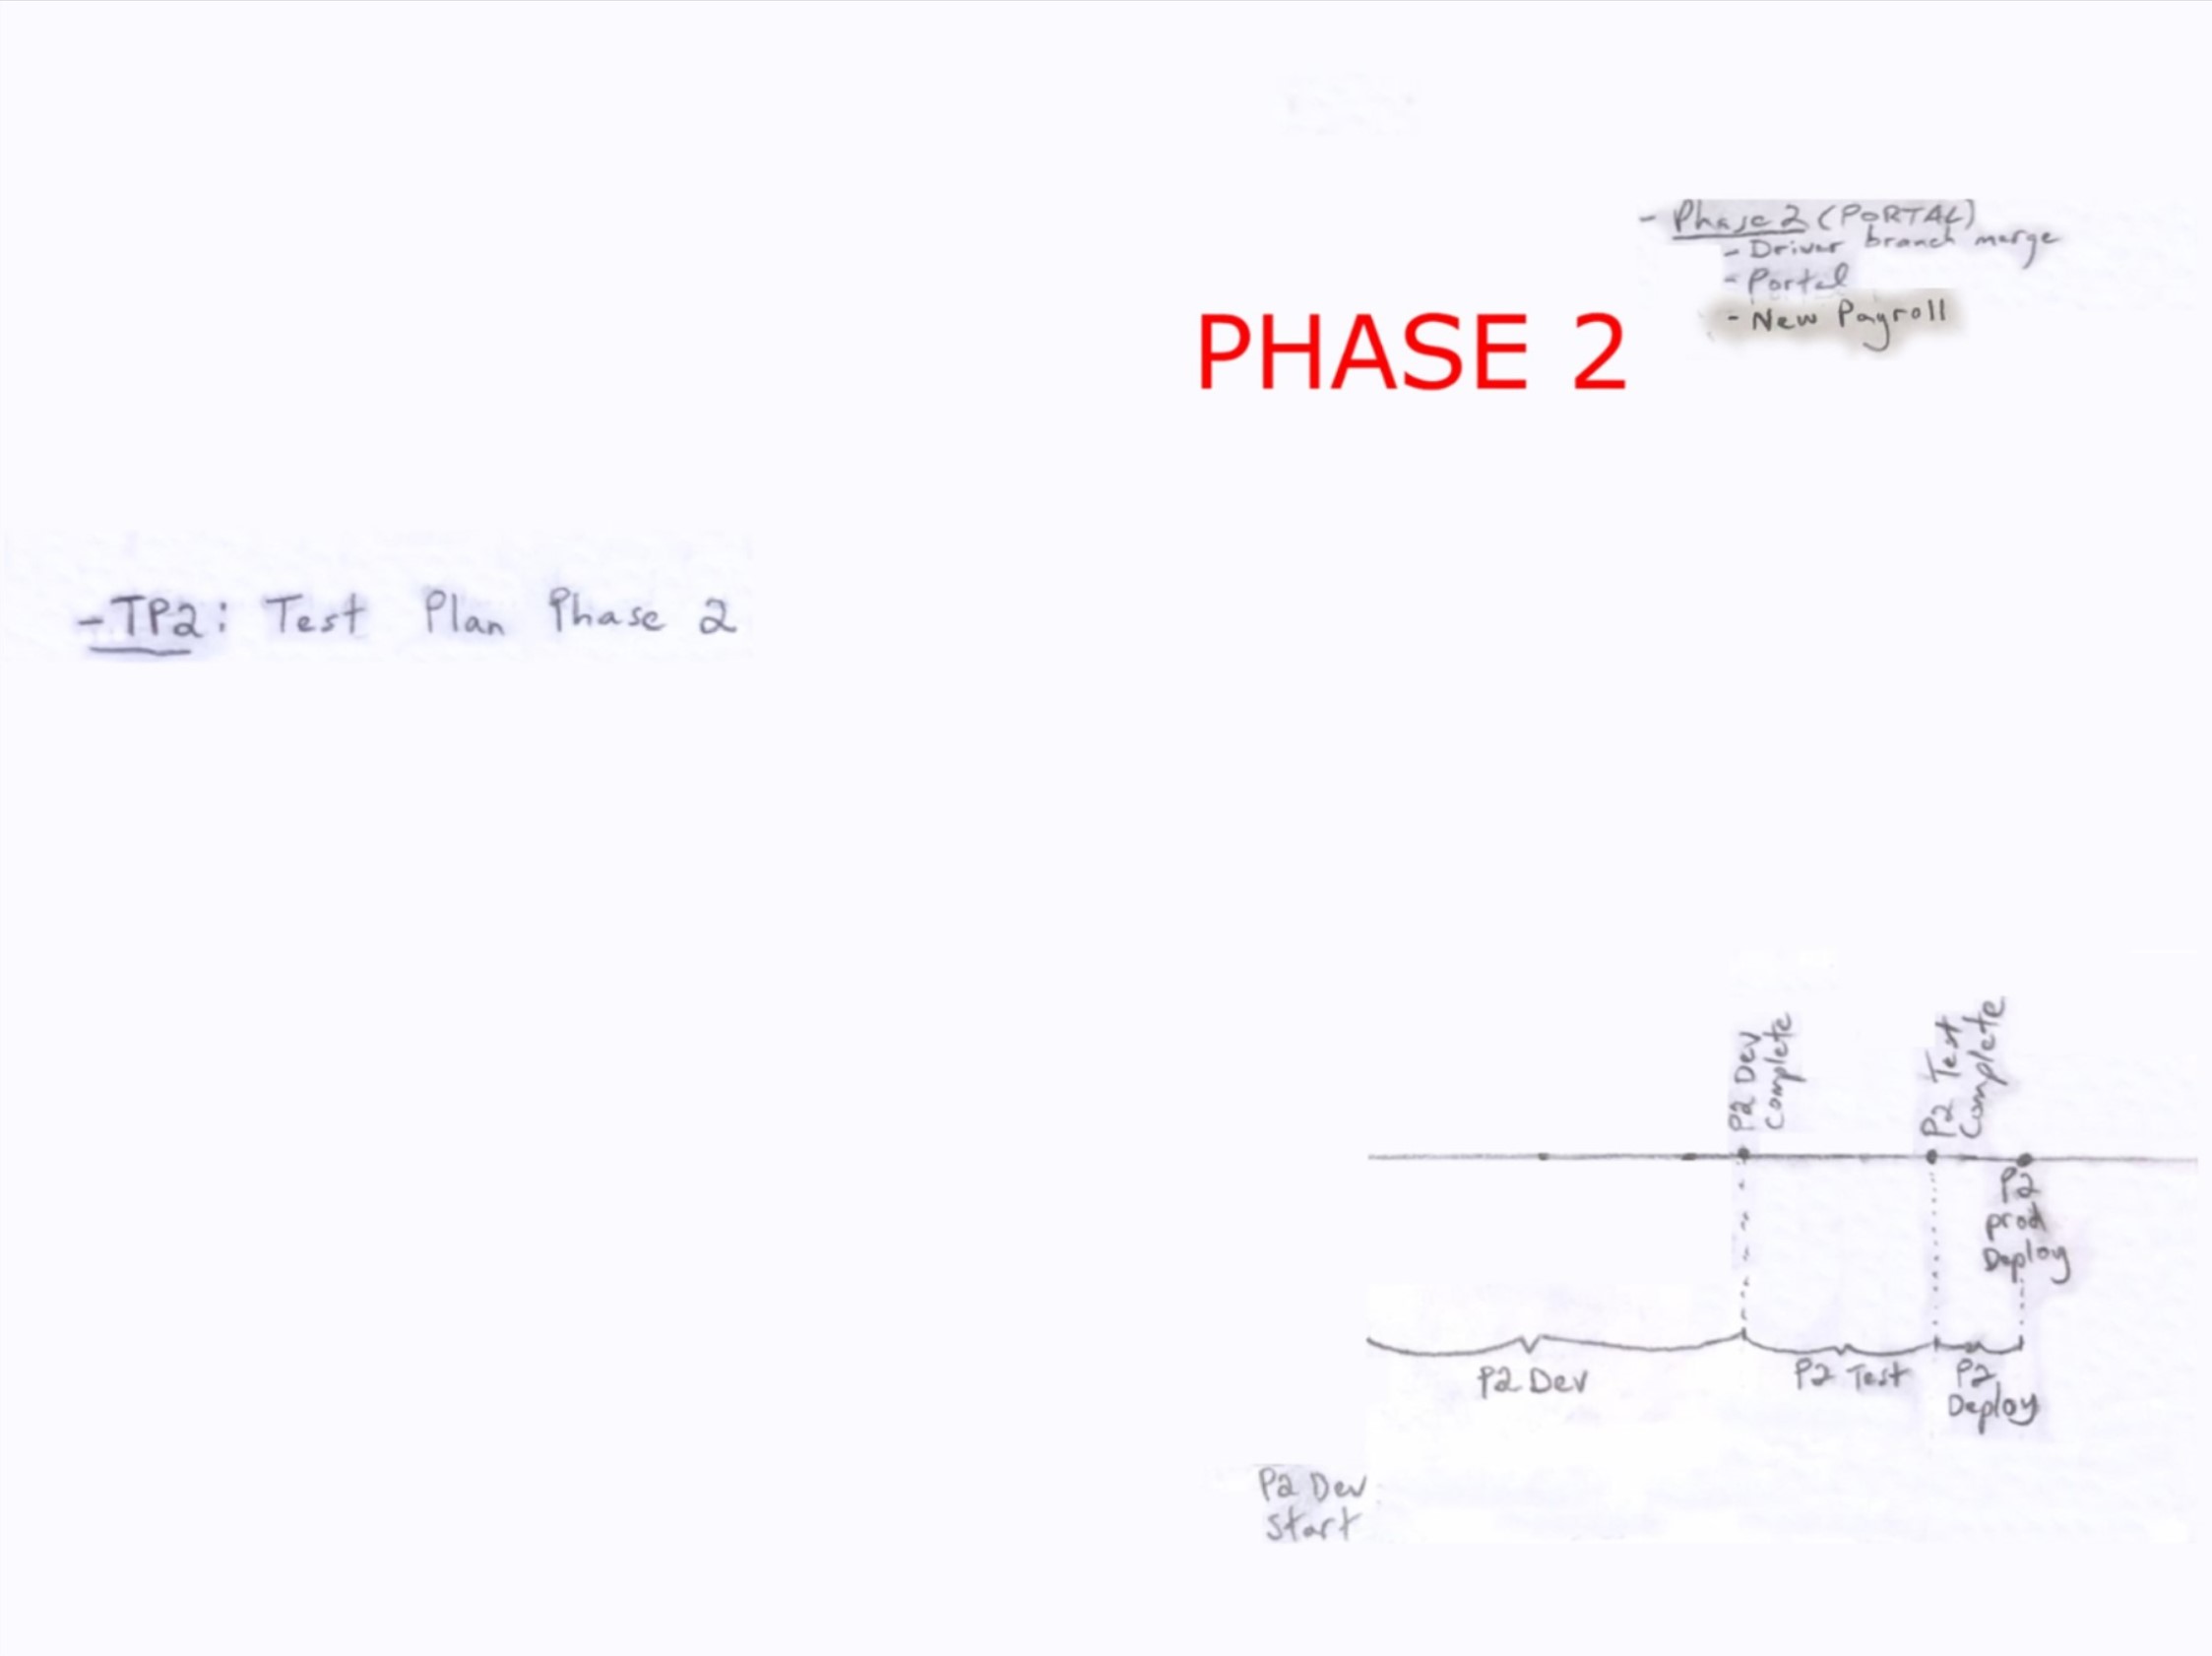 - Phase 2 (PORTAL)
- Driver branch merge
- Portal
- New Payroll
PHASE 2
-TP2: Test Plan Phase 2
P2 Dev
Complete
P2 Test
Complete
P2
prod
Deploy
P2 Dev
P2 Test
P2
Deploy
P2 Dev
Start